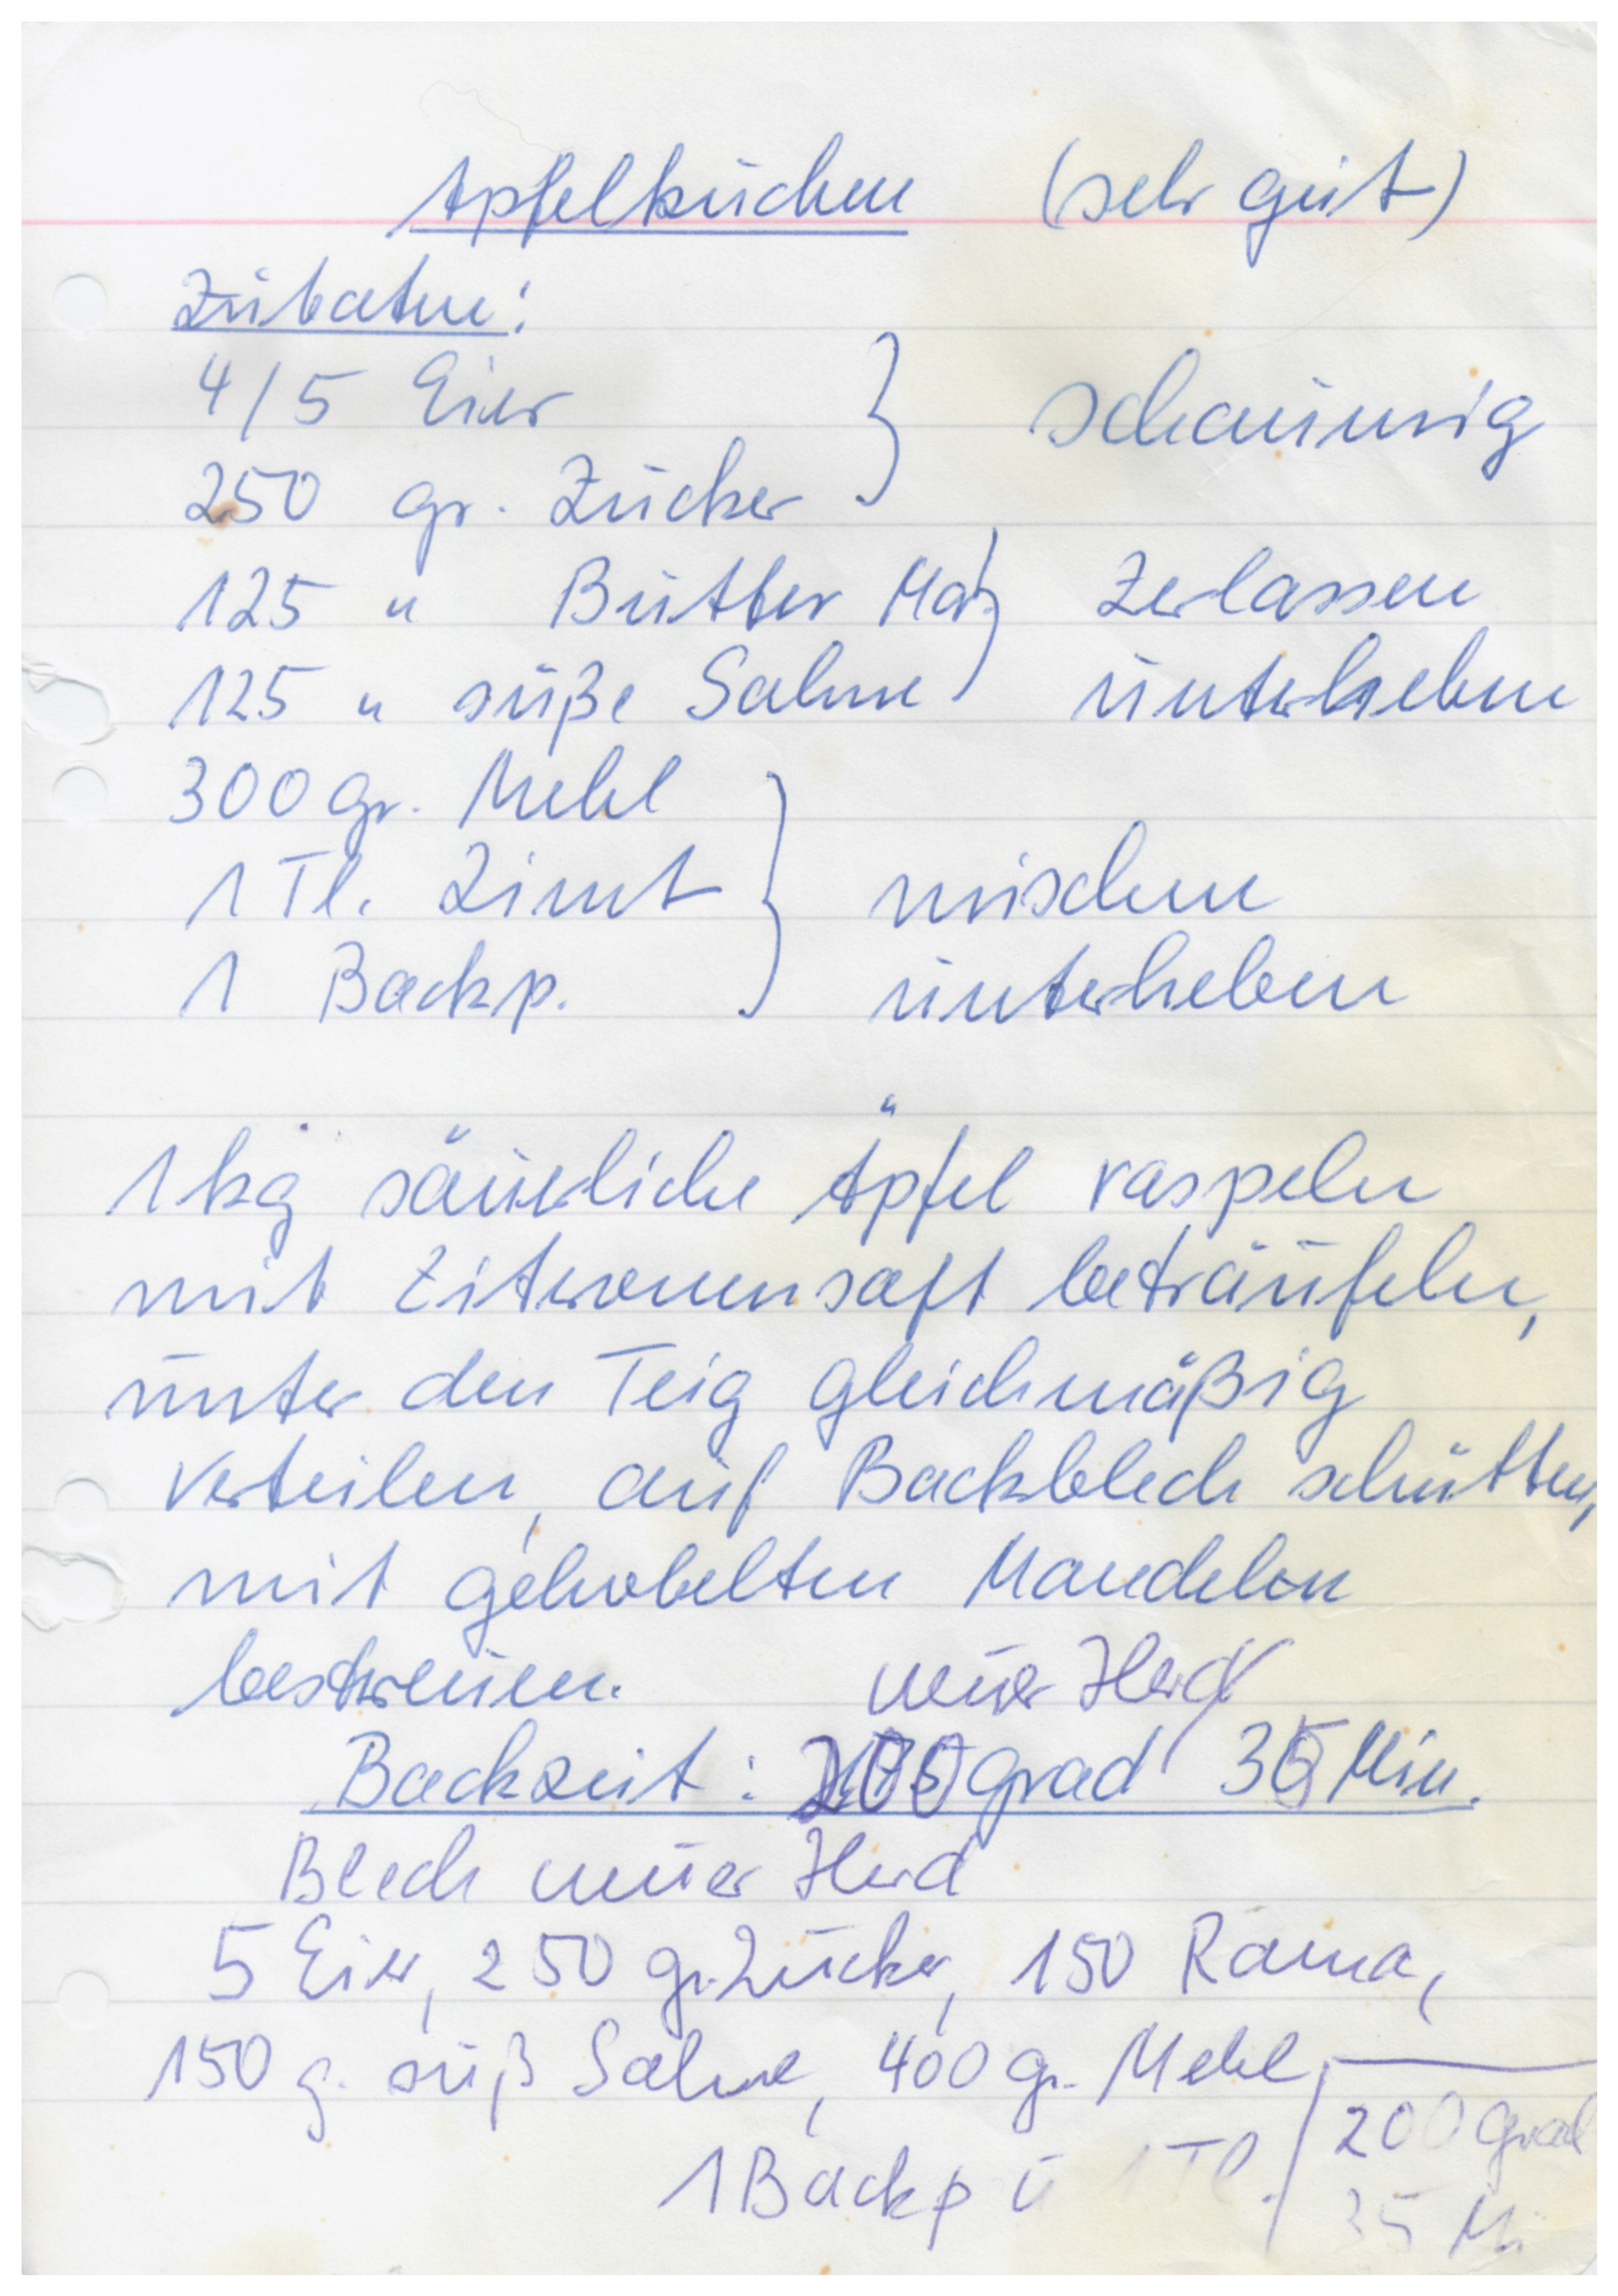 Apfelkuchen (sehr gut)
Zutaten:
4/5 Eier } schaumig
250 gr. Zucker
125 " Butter Mar } zerlassen
125 " süße Sahne unterheben
300 gr. Mehl
1 Tl. Zimt } mischen
1 Backp. unterheben
1 kg säuerliche Äpfel raspeln
mit Zitronensaft beträufeln,
unter den Teig gleichmäßig
verteilen, auf Backblech schütten,
mit gehobelten Mandeln
bestreuen. neuer Herd
Backzeit: 200 grad 35 Min.
Blech neuer Herd
5 Eier, 250 gr. Zucker, 150 Rama,
150 g. süß Sahne, 400 gr. Mehl,
1 Backp u 1 Tl. / 200 Grad
35 Mi